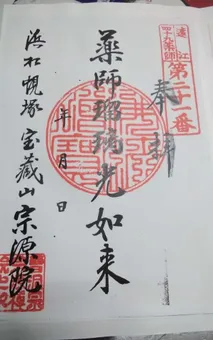 遠江
四十九薬師
第二十一番
奉拝
薬師瑠璃光如来
年 月 日
浜松蜆塚 宝蔵山 宗源院